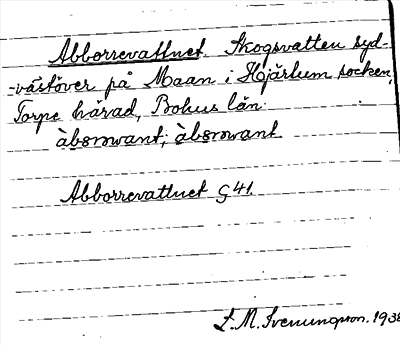 Abborrevattnet. Skogsvatten syd-
-västöver på Maan i Hjärtum socken,
Torpe härad, Bohus län:
àbsrovant; àbsrovant
Abborrevattnet G 41.
L. M. Svenungson. 1938